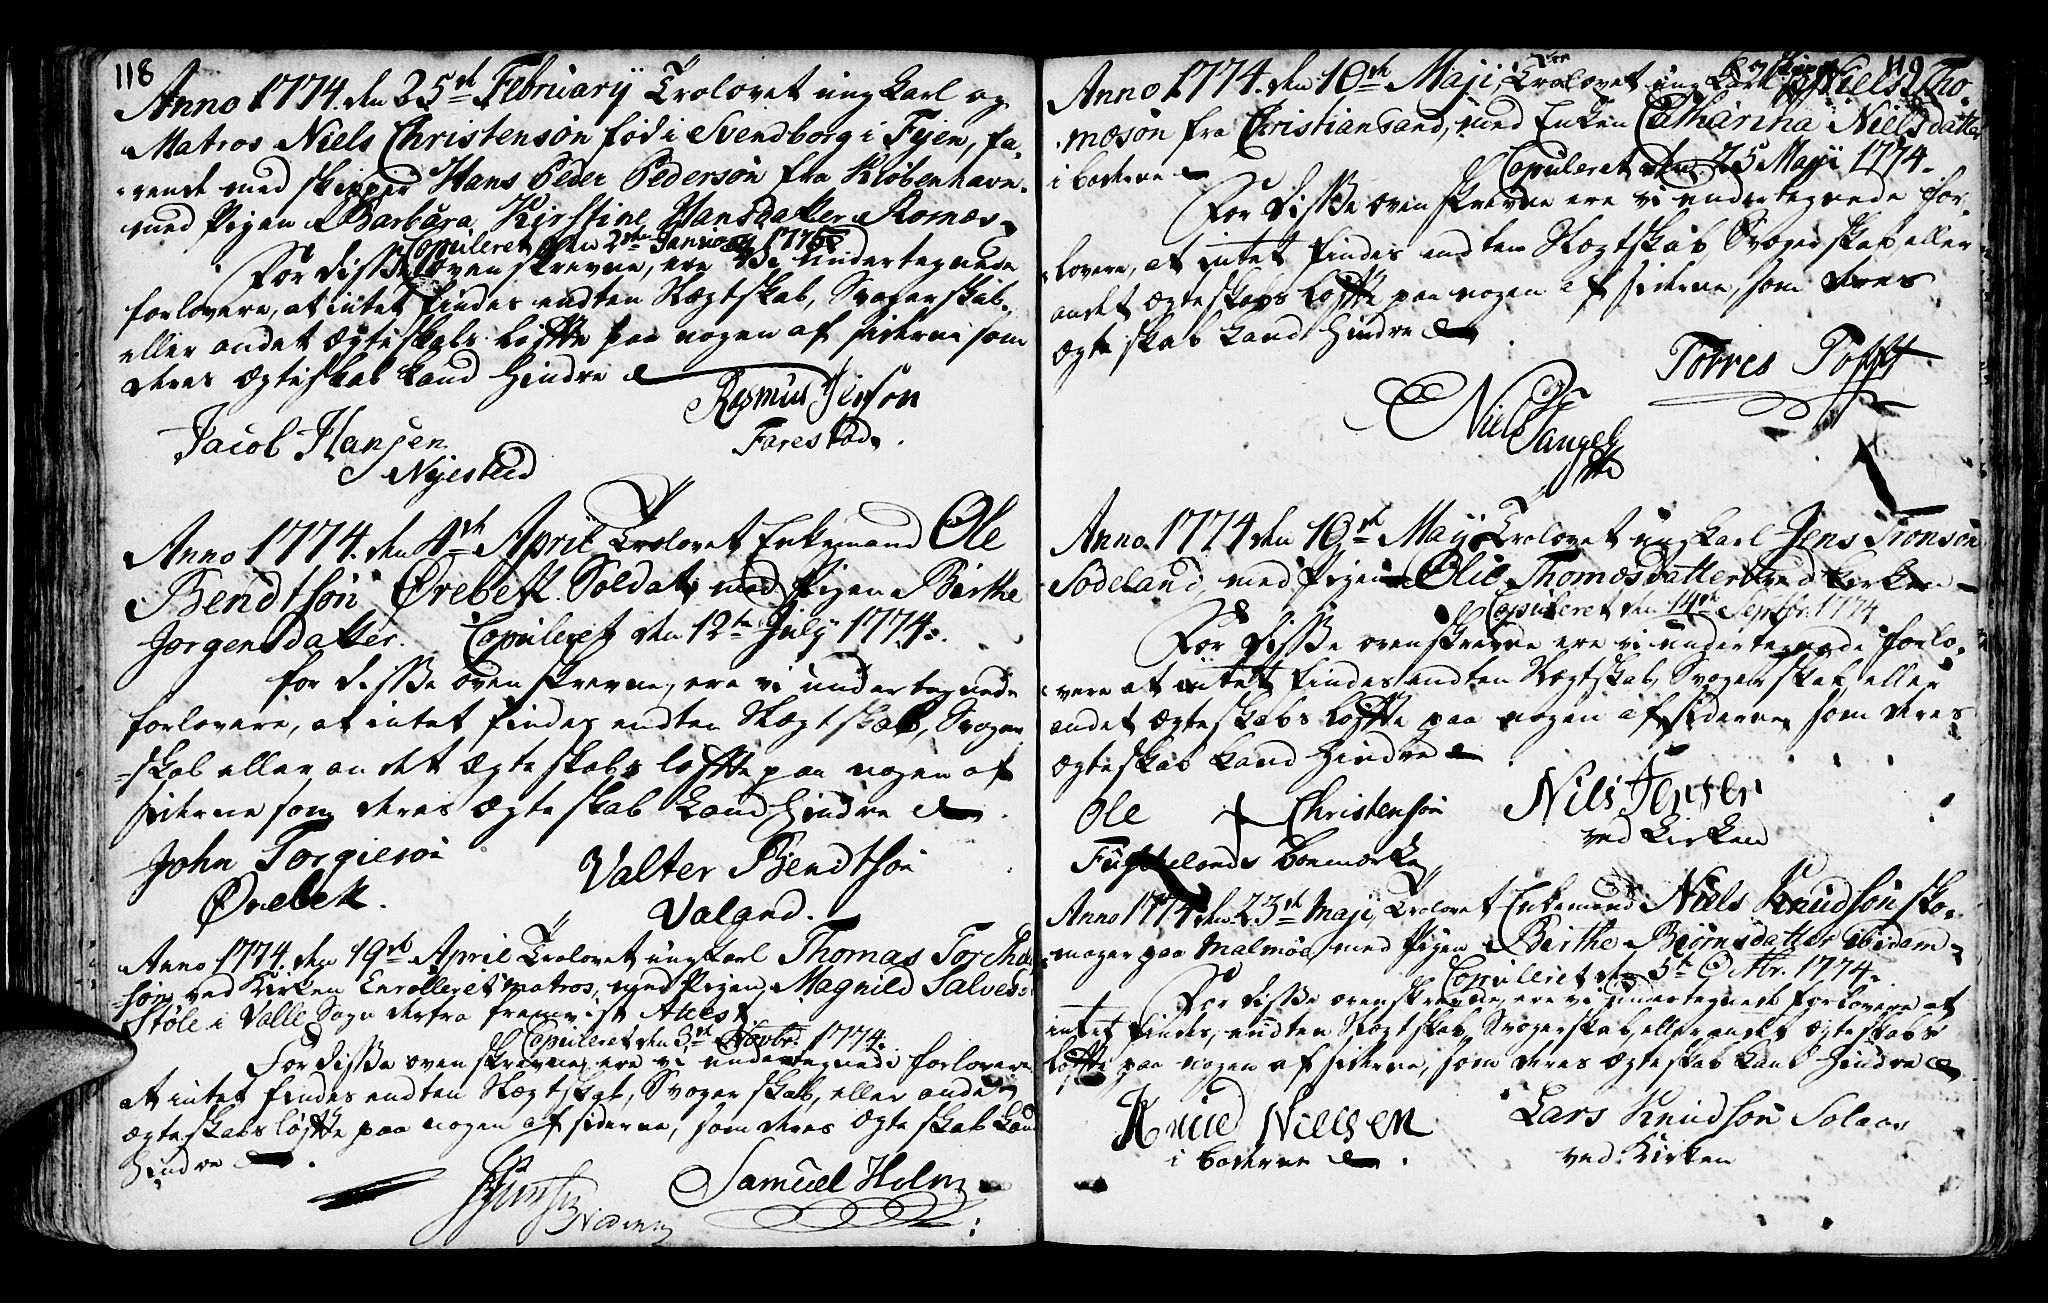 118
Anno 1774. den 25de February Trolovet ung Karl og
Matros Niels Christensøn fød i Svendborg i Fyen, fa-
rende med skipper Hans Peder Pedersøn fra Kiøbenhavn
med Pigen Barbara Kirstine Hansdatter
Copuleret den 2den January 1775
For disse ovenskrevne, ere vi undertegnede
forlovere, at intet findes endten Slægtskab, Svogerskab,
eller andet Ægteskabs løffte paa nogen af siderne som
deres Ægteskab kand hindre
Rasmus Jenson
Farestad
Jacob Hansen
Nyested
Anno 1774. den 4de April Trolovet Enkemand Ole
Bendtsøn Ørebek Soldat, med Pigen Birthe
Jørgensdatter. Copuleret den 12te July 1774.
for disse ovenskrevne, ere vi undertegnede
forlovere, at intet findes endten Slægtskab, Svoger-
skab eller andet Ægteskabs løffte paa nogen af
siderne som deres Ægteskab kand hindre
John Torgiesøn
Ørebek.
Valter Bendtsøn
Valand.
Anno 1774. den 19de April Trolovet ung Karl Thomas
søn ved Kirken Enrolleret matros, med Pigen Magnild
Støle i Valle Sogn derfra fremvist Attest
Copuleret den 3de Novbr. 1774.
For disse ovenskrevne ere vi undertegnede forlovere
at intet findes endten Slægtskab, Svogerskab, eller andet
Ægteskabs løffte paa nogen af siderne, som deres Ægteskab kand
hindre
Samuel Holm
119
Anno 1774. den 10de Maji, Trolovet ung Karl Niels Tho-
mæsøn fra Christiansand, med Enken Catharina Nielsdatter
i boderne
Copuleret den 25 Maji 1774.
For disse ovenskrevne ere vi undertegnede for-
lovere, at intet findes endten Slægtskab, Svogerskab eller
andet Ægteskabs løffte paa nogen af siderne, som deres
Ægteskab kand hindre
Torres Tofft
Niels Tangen
Anno 1774 den 10de Maji Trolovet ung Karl Jens Tronsøn
Sodeland, med Pigen Olie Thomæsdatter ved Kirken
Copuleret den 14de Septbr. 1774
For disse ovenskrevne ere vi undertegnede forlo-
vere at intet findes endten Slægtskab, Svogerskab, eller
andet Ægteskabs løffte paa nogen af siderne, som deres
Ægteskab kand hindre
Ole Christensøn
boemærke
Nils Jensen
ved Kirken
Anno 1774 den 23de Maji, Trolovet Enkemand Niels Knudsøn sko-
mager paa Malmøe, med Pigen Birthe Biørnsdatter ibidem
Copuleret den 5te Octbr. 1774.
For disse ovenskrevne, ere vi undertegnede forlovere at
intet findes, endten Slægtskab, Svogerskab, eller andet Ægteskabs
løffte paa nogen af siderne, som deres Ægteskab kand hindre
Knud Nielsen
i boderne
Lars Knudsøn Solaas
ved Kirken